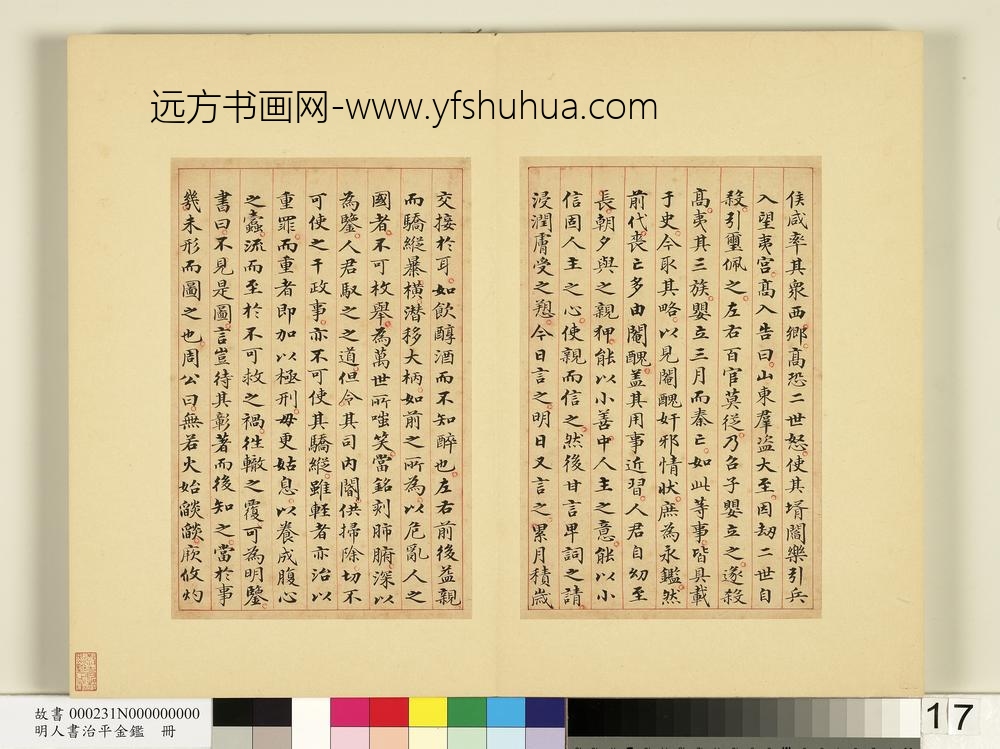 远方书画网-www.yfshuhua.com
侯咸率其衆西鄉高恐二世怒使其壻閻樂引兵
入望夷宫高入告曰山東羣盗大至因刼二世自
殺引璽佩之左右百官莫從乃召子嬰立之遂殺
高夷其三族嬰立三月而秦亡如此等事皆具載
于史今取其略以見閹醜奸邪情狀庶為永鑑然
前代喪亡多由閹醜蓋其用事近習人君自幼至
長朝夕與之親狎能以小善中人主之意能以小
信固人主之心使親而信之然後甘言卑詞之請
浸潤膚受之愬今日言之明日又言之累月積歲
交接於耳如飲醇酒而不知醉也左右前後益親
而驕縱暴横潛移大柄如前之所為以危亂人之
國者不可枚舉為萬世所嗤笑當銘刻肺腑深以
為鑒人君馭之之道但令其司内閤供掃除切不
可使之干政事亦不可使其驕縱雖輕者亦治以
重罪而重者即加以極刑毋更姑息以養成腹心
之蠹流而至於不可救之禍徃轍之覆可為明鑒
書曰不見是圖言豈待其彰著而後知之當於事
幾未形而圖之也周公曰無若火始燄燄厥攸灼
故書 000231N000000000
明人書治平金鑑 冊
17